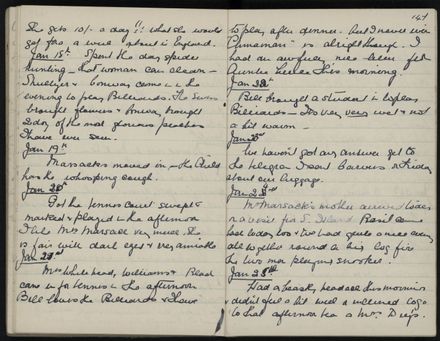 She gets 10/- a day!! what she would
get for a week about in England.
Jan 18th Spent the day spider
hunting – that woman can clean –
& Conway came in in the
evening to play Billiards. The
brought flowers & Conway brought
2 doz of the most glorious peaches
I have ever seen.
Jan 19th
Marsacks moved in – the Child
has the whooping cough.
Jan 20th
Got the tennis court swept &
marked & played in the afternoon
I like Mrs Marsack very much. She
is fair with dark eyes & very amiable
Jan 21st
Mrs Whitehead, Williams & Read
came in for tennis in the afternoon
Bill loves the Billiards & I have
147
to play after dinner. But I never win
is alright though. I
had an awfully nice letter from
Auntie this morning.
Jan 22nd
Bill brought a student in to play
Billiards – It's very very wet & not
a bit warm –
Jan
We haven't got any answer yet to
the telegram I sent on Friday
about our luggage.
Jan
Mrs Marsack's mother arrived
a visit from S. Island Basil came
back today too & we had quite a nice evening
all together round a big log fire
the two men playing snooker.
Jan 25th
Had a beastly headache this morning
didn't feel a bit well & wanted to go
to that afternoon tea a Mrs